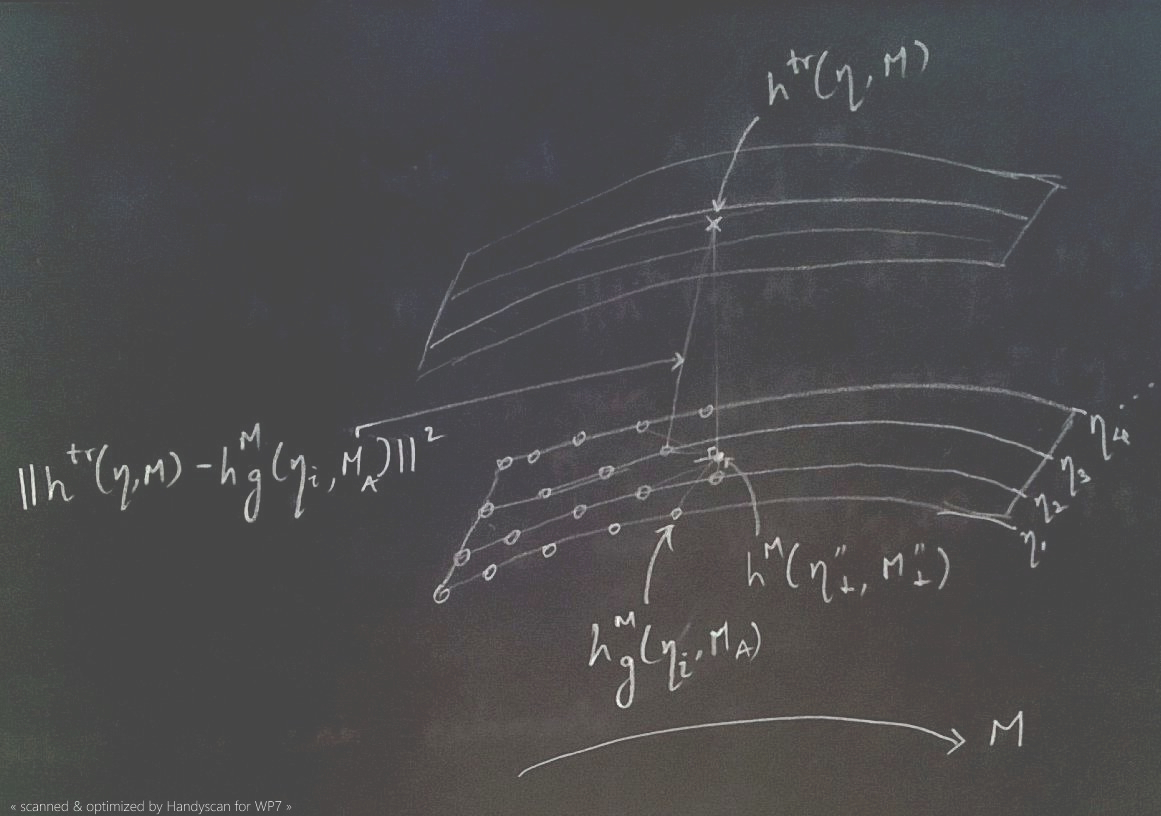 h^tr(η, M)
||h^tr(η,M) - h_g^M(η_i, M_A)||²
η₄
η₃
η₂
η₁
h^M(η"_⊥, M"_⊥)
h_g^M(η_i, M_A)
M
« scanned & optimized by Handyscan for WP7 »